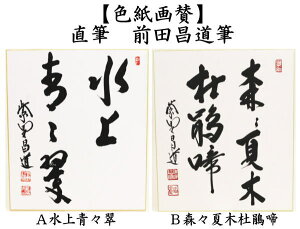 【色紙画賛】
直筆 前田昌道筆
水上
青々翠
紫野昌道
森々夏木
杜鵑啼
紫野昌道
A水上青々翠
B森々夏木杜鵑啼